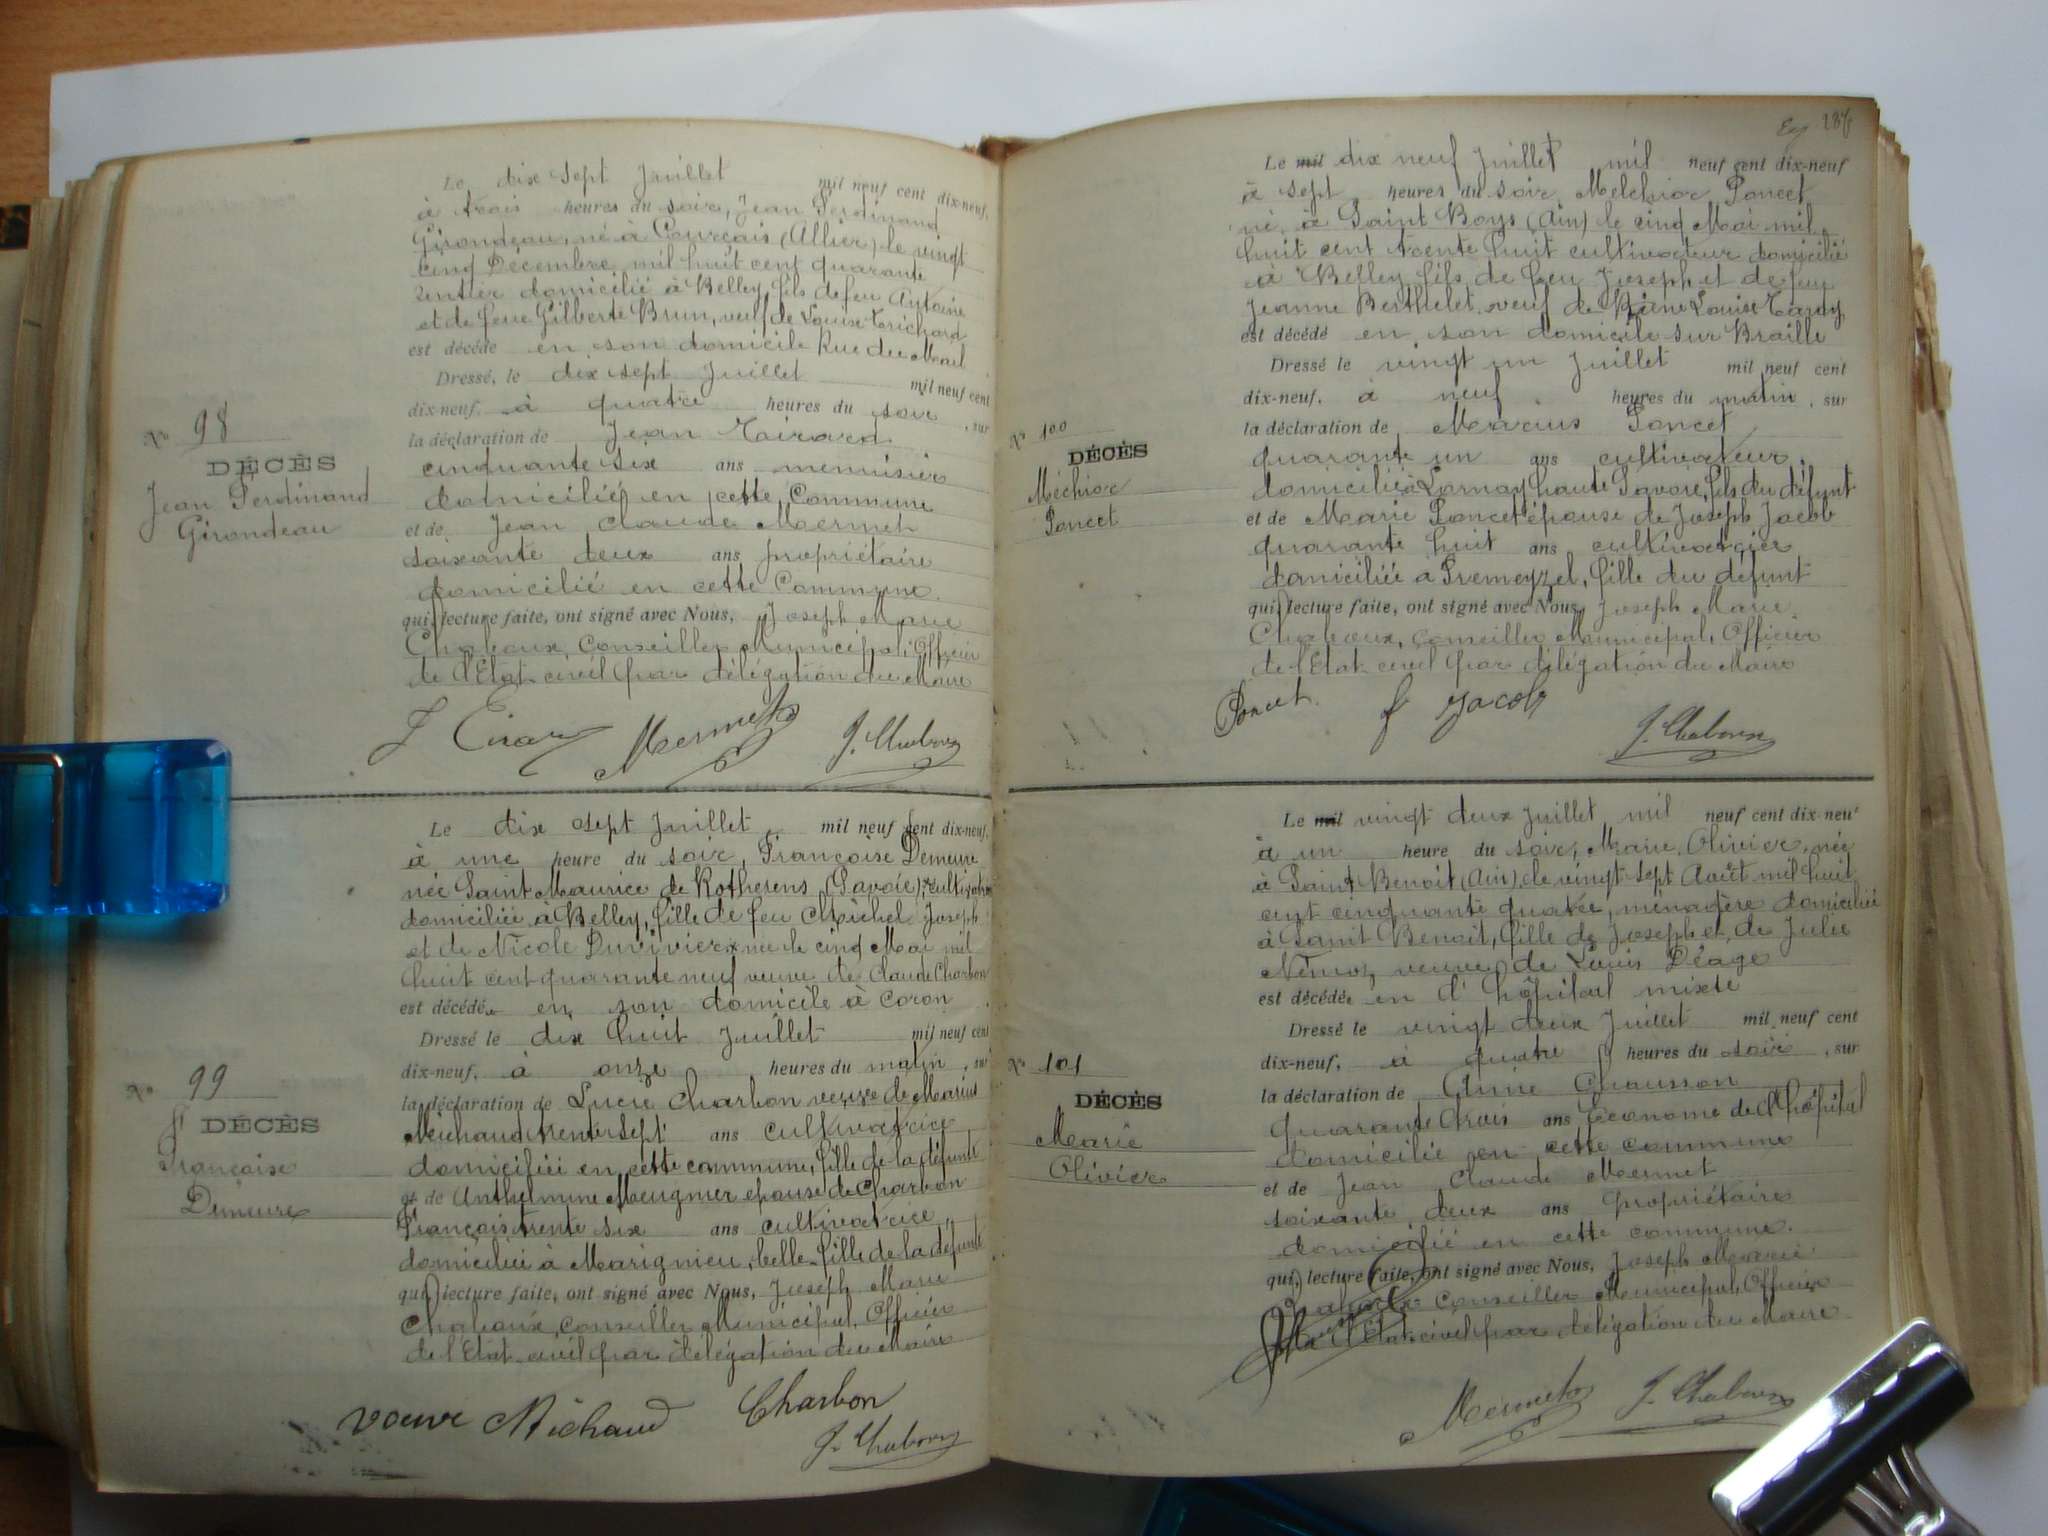 Le dix sept Juillet mil neuf cent dix-neuf,
à trois heures du soir, Jean Ferdinand
Girondeau, né à Courçais (Allier) le vingt
cinq Décembre mil huit cent quarante
rentier domicilié à Belley, fils de feu Antoine
et de feue Gilberte Brun, veuf de Louise
est décédé en son domicile Rue du Mail
Dressé, le dix sept Juillet mil neuf cent
dix-neuf, à quatre heures du soir, sur
la déclaration de Jean
cinquante six ans menuisier
domicilié en cette Commune
et de Jean Claude Mermet
soixante deux ans propriétaire
domicilié en cette Commune.
qui, lecture faite, ont signé avec Nous, Joseph Marie
Chaboux, Conseiller Municipal, Officier
de l'Etat civil par délégation du Maire
Mermet J. Chaboux
No 98
DÉCÈS
Jean Ferdinand
Girondeau
Le dix sept Juillet mil neuf cent dix-neuf,
à une heure du soir, Françoise Demeure
née Saint Maurice de Rotherens (Savoie)
domiciliée à Belley, fille de feu Michel Joseph
et de Nicole Duvivier née le cinq Mai mil
huit cent quarante neuf veuve de Claude Charbon
est décédée en son domicile à Coron
Dressé le dix huit Juillet mil neuf cent
dix-neuf, à onze heures du matin, sur
la déclaration de Lucie Charbon veuve de Marius
Michaud trente sept ans cultivatrice
domiciliée en cette commune, fille de la défunte
et de Anthelmine Meugnier épouse de Charbon
François trente six ans cultivatrice
domiciliée à Marignieu, belle-fille de la défunte
qui, lecture faite, ont signé avec Nous, Joseph Marie
Chaboux, Conseiller Municipal, Officier
de l'Etat civil par délégation du Maire
veuve Michaud Charbon
J. Chaboux
No 99
DÉCÈS
Françoise
Demeure
287
Le mil dix neuf Juillet mil neuf cent dix-neuf
à sept heures du soir, Melchior Poncet
né à Saint Boys (Ain) le cinq Mai mil
huit cent trente huit cultivateur domicilié
à Belley, fils de feu Joseph et de feu
Jeanne Berthelet veuf de Louise Tardy
est décédé en son domicile sur Braille
Dressé le vingt un Juillet mil neuf cent
dix-neuf, à neuf heures du matin, sur
la déclaration de Marius Poncet
quarante un ans cultivateur
domicilié à Lornay haute Savoie, fils du défunt
et de Marie Poncet épouse de Joseph Jacob
quarante huit ans cultivatrice
domiciliée à Premeyzel, fille du défunt
qui, lecture faite, ont signé avec Nous, Joseph Marie
Chaboux, Conseiller Municipal, Officier
de l'Etat civil par délégation du Maire
Poncet Jacob
J. Chaboux
No 100
DÉCÈS
Méchior
Poncet
Le mil vingt deux Juillet mil neuf cent dix-neuf
à un heure du soir, Marie Olivier, née
à Saint Benoit (Ain), le vingt-sept Août mil huit
cent cinquante quatre, ménagère domiciliée
à Saint Benoit, fille de Joseph et de Julie
veuve de Louis Déage
est décédée en l'hôpital mixte
Dressé le vingt deux Juillet mil neuf cent
dix-neuf, à quatre heures du soir, sur
la déclaration de Aimé Chausson
quarante trois ans, Econome de l'hôpital
domicilié en cette commune
et de Jean Claude Mermet
soixante deux ans propriétaire
domicilié en cette commune.
qui, lecture faite, ont signé avec Nous, Joseph Marie
Chaboux Conseiller Municipal, Officier
de l'Etat civil par délégation du Maire
Mermet J. Chaboux
No 101
DÉCÈS
Marie
Olivier